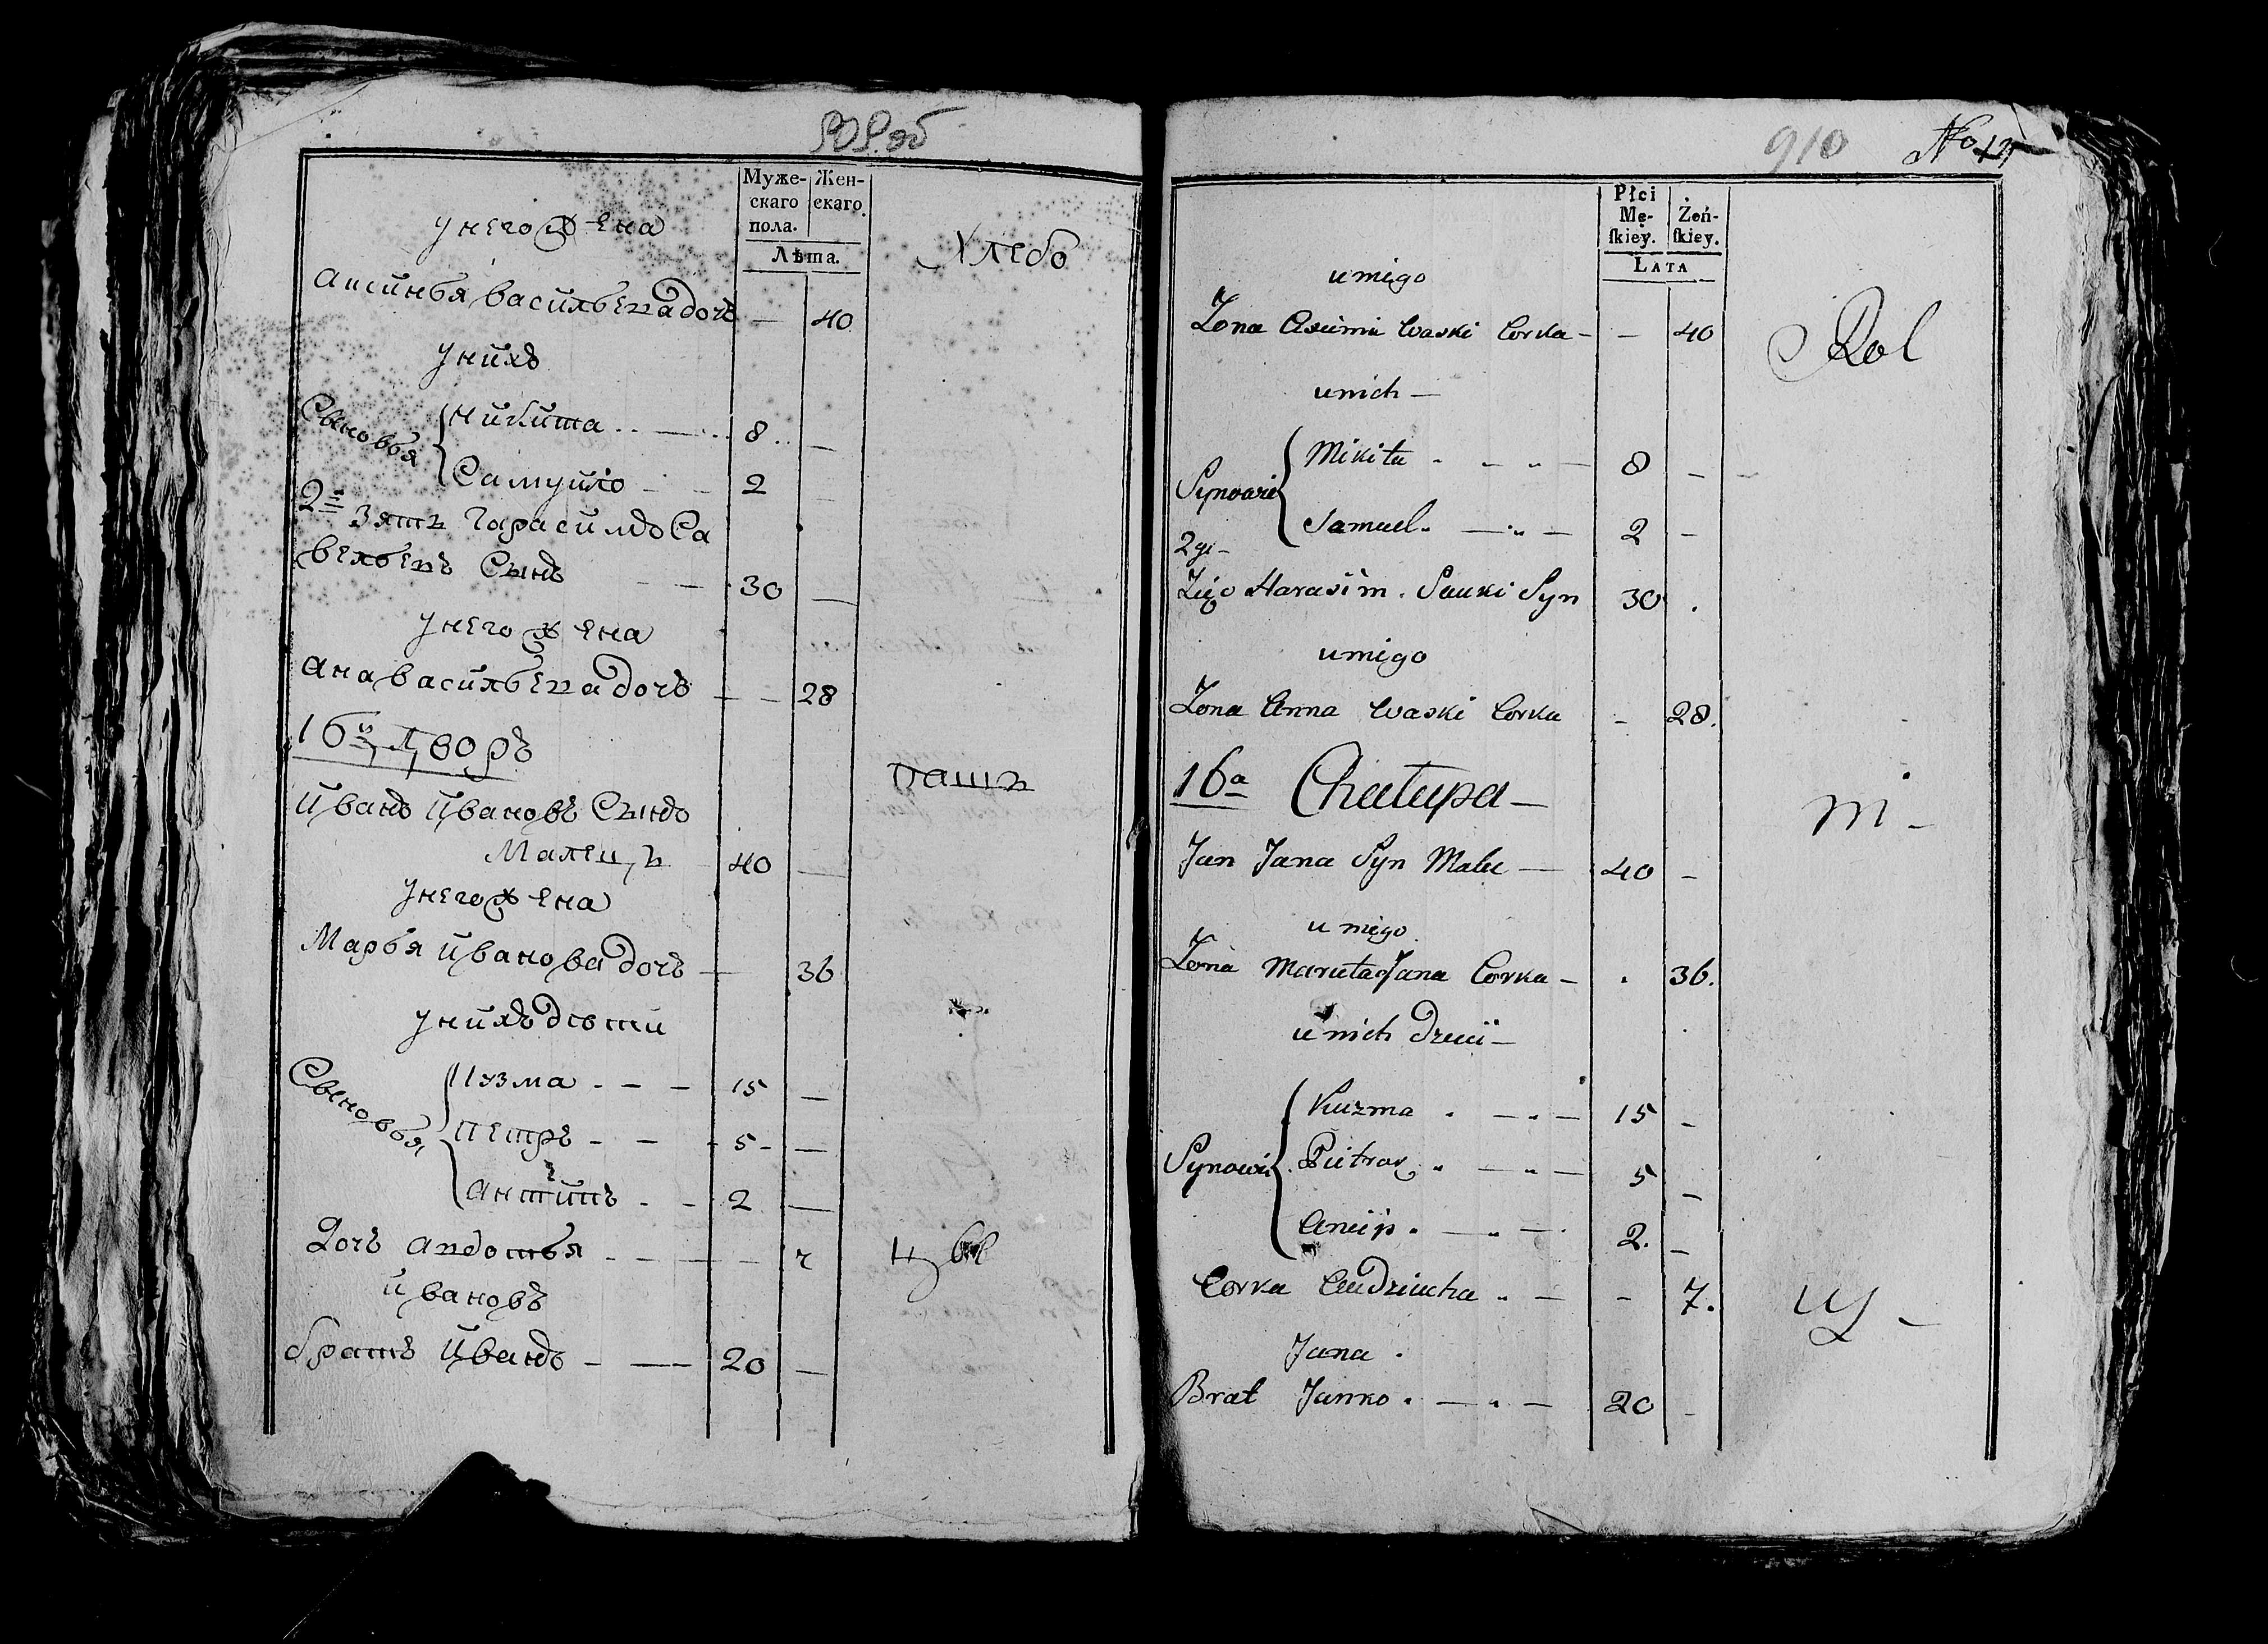 Муже-
скаго
пола.
Жен-
скаго.
Лѣта.
Хлебо
у него жена
Аксинья васильева дочь — 40
у нихъ
Сыновья
никита 8 —
Самуйло 2 —
2й зять Гарасимъ Са
вельевъ Сынъ 30 —
у него жена
Ана васильева дочь — 28
16й Дворъ
пашъ
Иванъ Ивановъ Сынъ
Малецъ 40 —
у него жена
Марья Иванова дочь — 36
у нихъ дѣти
Сыновья
Кузма 15 —
Петръ 5 —
Антипъ 2 —
Дочь Авдотья
Ивановъ
братъ Иванъ 20 —
910
Płci
Mę-
ſkiey.
Żeń-
ſkiey.
LATA
Rol
u niego
Zona Axinia Waski Corka — 40
u nich —
Synowie
Mikita 8 —
Samuel 2 —
2gi
Zięć Harasim Sauki Syn 30
u niego
Zona Anna Waski Corka — 28.
16a Chałupa —
m —
Jan Jana Syn Malec — 40 —
u niego
Zona Maruta Jana Corka — 36.
u nich Dzieci —
Synowie
Kuzma 15 —
Pietrow 5 —
Ancip 2. —
Corka Audziucha — 7.
Jana
Brat Janko 20 —